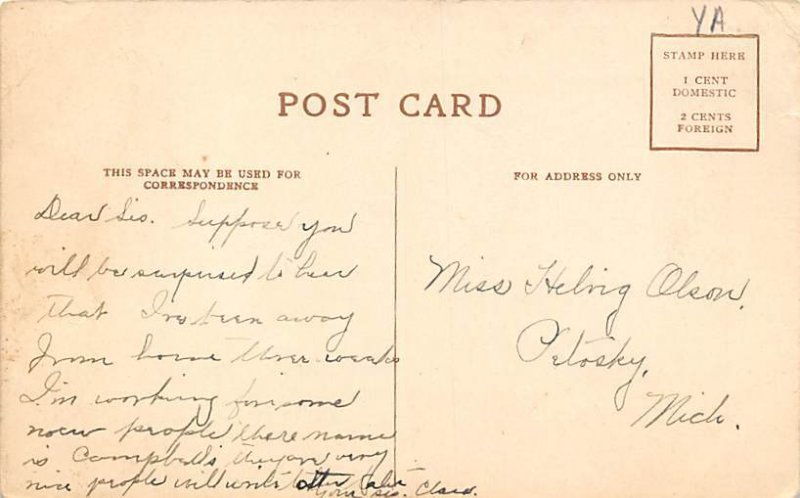 YA
STAMP HERE
1 CENT
DOMESTIC
2 CENTS
FOREIGN
POST CARD
THIS SPACE MAY BE USED FOR
CORRESPONDENCE
FOR ADDRESS ONLY
Dear Sis. Suppose you
will be surprised to hear
that I've been away
from home three weeks
I'm working for some
new people there name
is Campbells, they are very
nice people will write later
your sis. Clara.
Miss Helvig Olson.
Petosky,
Mich.